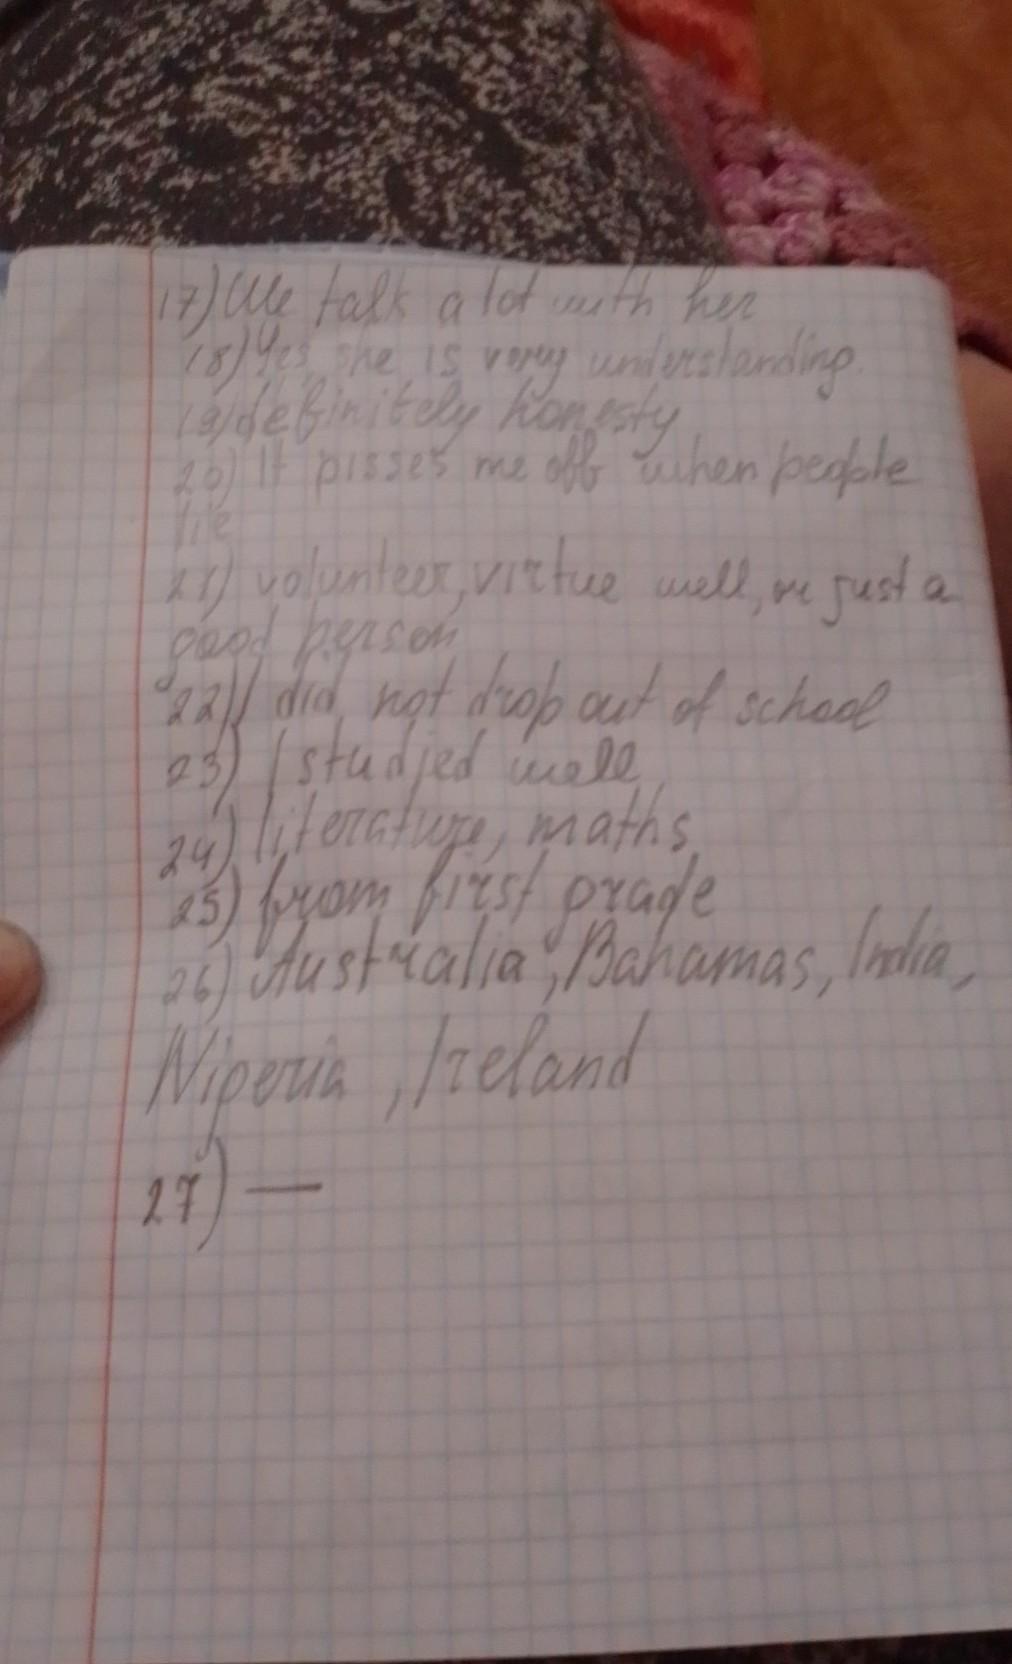 17) We talk a lot with her
18) Yes, she is very understanding.
19) definitely honesty
20) It pisses me off when people
lie
21) volunteer, virtue well, or just a
good person
22) I did not drop out of school
23) I studied well
24) literature, maths
25) from first grade
26) Australia, Bahamas, India,
Nigeria, Ireland
27) —